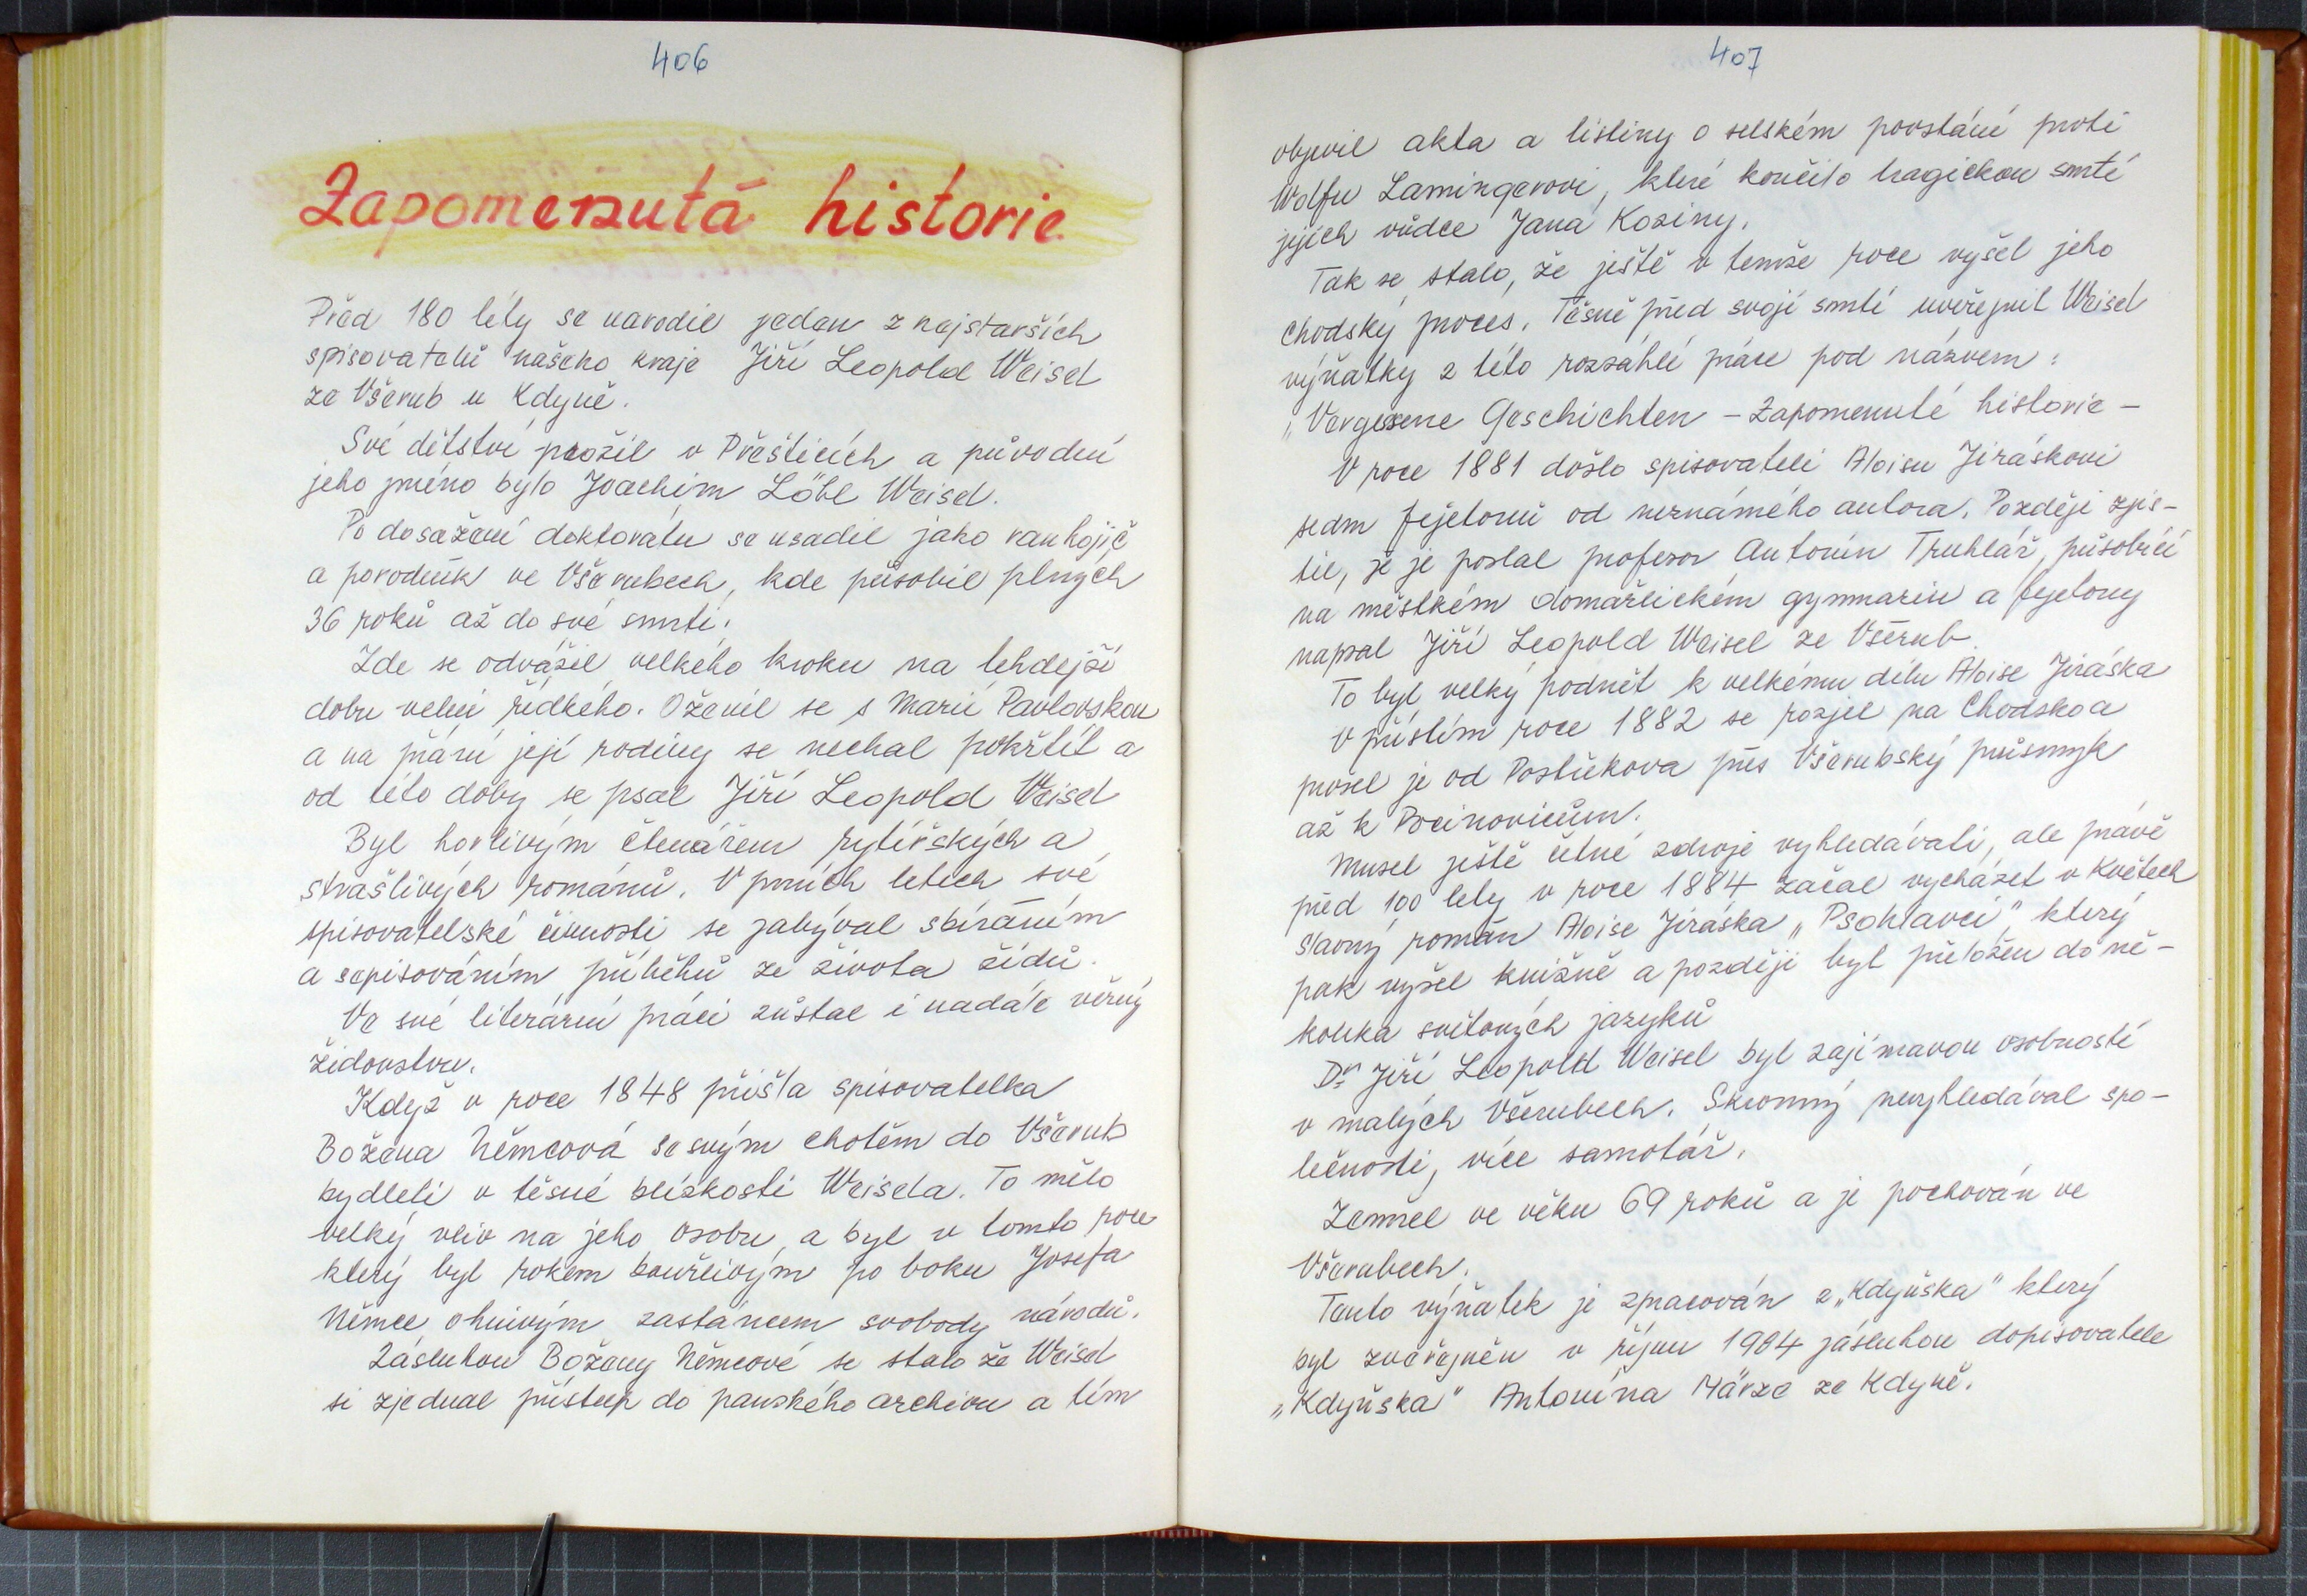 406
Zapomenutá historie
Před 180 léty se narodil jeden z nejstarších
spisovatelů našeho kraje Jiří Leopold Weisel
ze Všerub u Kdyně.
Své dětství prožil v Přešticích a původní
jeho jméno bylo Joachim Löbl Weisel.
Po dosažení doktorátu se usadil jako ranhojič
a porodník ve Všerubech, kde působil plných
36 roků až do své smrti.
Zde se odvážil velkého kroku na tehdejší
dobu velmi řídkého. Oženil se s Marií Pavlovskou
a na přání její rodiny se nechal pokřtít a
od této doby se psal Jiří Leopold Weisel
Byl horlivým čtenářem rytířských a
strašlivých románů. V prvních letech své
spisovatelské činnosti se zabýval sbíráním
a sepisováním příběhů ze života židů.
Ve své literární práci zůstal i nadále věrný
židovstvu.
Když v roce 1848 přišla spisovatelka
Božena Němcová se svým chotěm do Všerub
bydleli v těsné blízkosti Weisela. To mělo
velký vliv na jeho osobu a byl v tomto roce
který byl rokem bouřlivým po boku Josefa
Němce ohnivým zastáncem svobody národů.
Zásluhou Boženy Němcové se stalo že Weisel
si zjednal přístup do panského archivu a tím
407
objevil akta a listiny o selském povstání proti
Wolfu Lamingerovi, které končilo tragickou smrtí
jejich vůdce Jana Koziny.
Tak se stalo, že ještě v temže roce vyšel jeho
Chodský proces. Těsně před svojí smrtí uveřejnil Weisel
výňatky z této rozsáhlé práce pod názvem:
„Vergessene Geschichten – Zapomenuté historie –
V roce 1881 došlo spisovateli Aloisu Jiráskovi
sedm fejetonů od neznámého autora. Později zjis-
til, že je poslal profesor Antonín Truhlář, působící
na městkém domažlickém gymnaziu a fejetony
napsal Jiří Leopold Weisel ze Všerub
To byl velký podnět k velkému dílu Aloise Jiráska
V příštím roce 1882 se rozjel na Chodsko a
prošel je od Postřekova přes Všerubský průsmyk
až k Pocinovicům.
Musel ještě četné zdroje vyhledávati, ale právě
před 100 lety v roce 1884 začal vycházet v Květech
slavný román Aloise Jiráska „Psohlavci", který
pak vyšel knižně a později byl přeložen do ně-
kolika světových jazyků
Dr Jiří Leopold Weisel byl zajímavou osobností
v malých Všerubech. Skromný nevyhledával spo-
lečnosti, více samotář.
Zemřel ve věku 69 roků a je pochován ve
Všerubech.
Tento výňatek je zpracován z „Kdyňska" který
byl zveřejněn v říjnu 1984 zásluhou dopisovatele
„Kdyňska" Antonína Märze ze Kdyně.